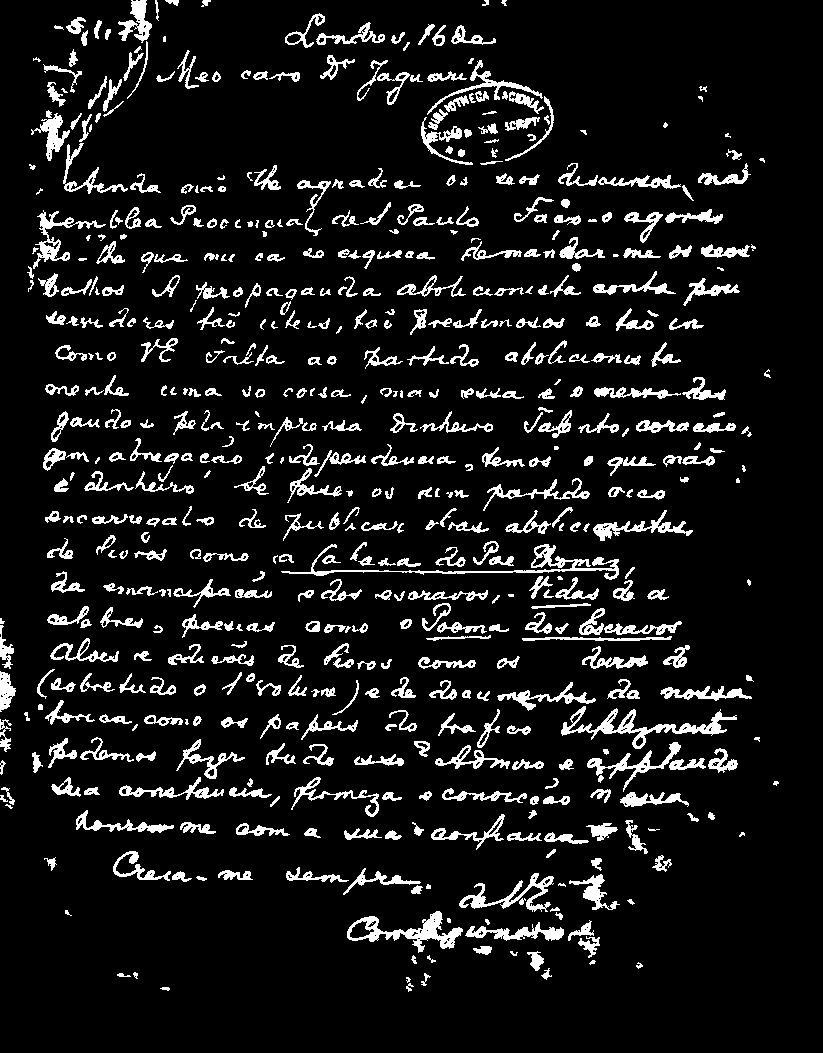 -5,1,79.
Londres, 16 de
Meo caro Dr Jaguaribe
BIBLIOTHECA NACIONAL
Ainda não lhe agradeci os seos discursos, na
semblea Provincial de S. Paulo Faço-o agora,
do-lhe que nu ca se esqueca de mandar-me os seos
balhos A propaganda abolicionista conta pou
servidores taõ uteis, taõ prestimosos e taõ in
como VE Falta ao partido abolicionista
mente uma so coisa, mas essa é o nervo das
gandas pela imprensa Dinheiro Talento, coração,
gem, abnegação independencia, temos o que não
é dinheiro Se fosse os um partido rico
encarregal-o de publicar obras abolicionistas,
de livros como a Cabana do Pae Thomaz,
da emancipacão e dos escravos, - Vidas de a
celebres, poesias como o Poema dos Escravos
Alves e edicões de livros como os de
(sobretudo o 1º volume) e de documentos da nossa
torica, como os papeis do trafico Infelizmente
podemos fazer tudo isso Admiro e applaudo
sua constancia, firmeza e convicção n essa
honrow me com a sua confiança
Creia-me sempre
de V.E.
Correligionario